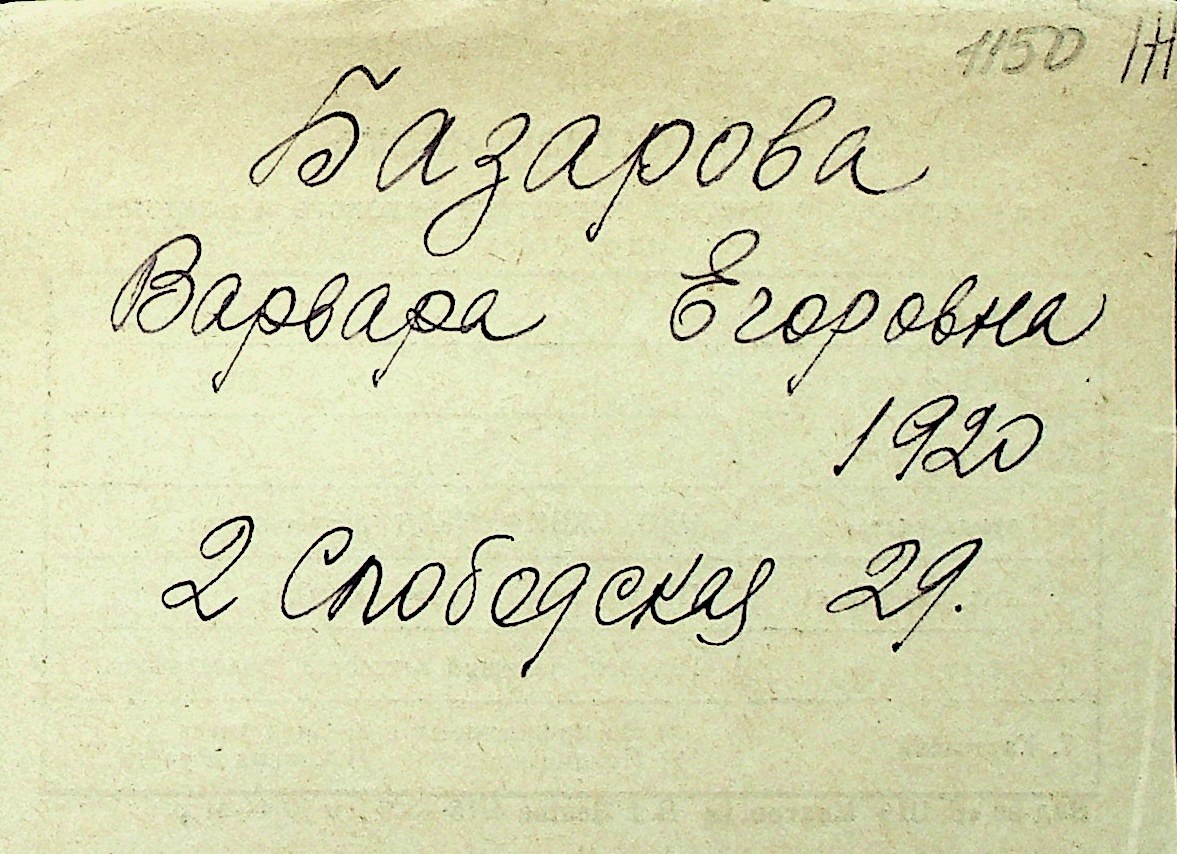 1150 Ж
Базарова
Варвара Егоровна
1920
2 Слободская 29.